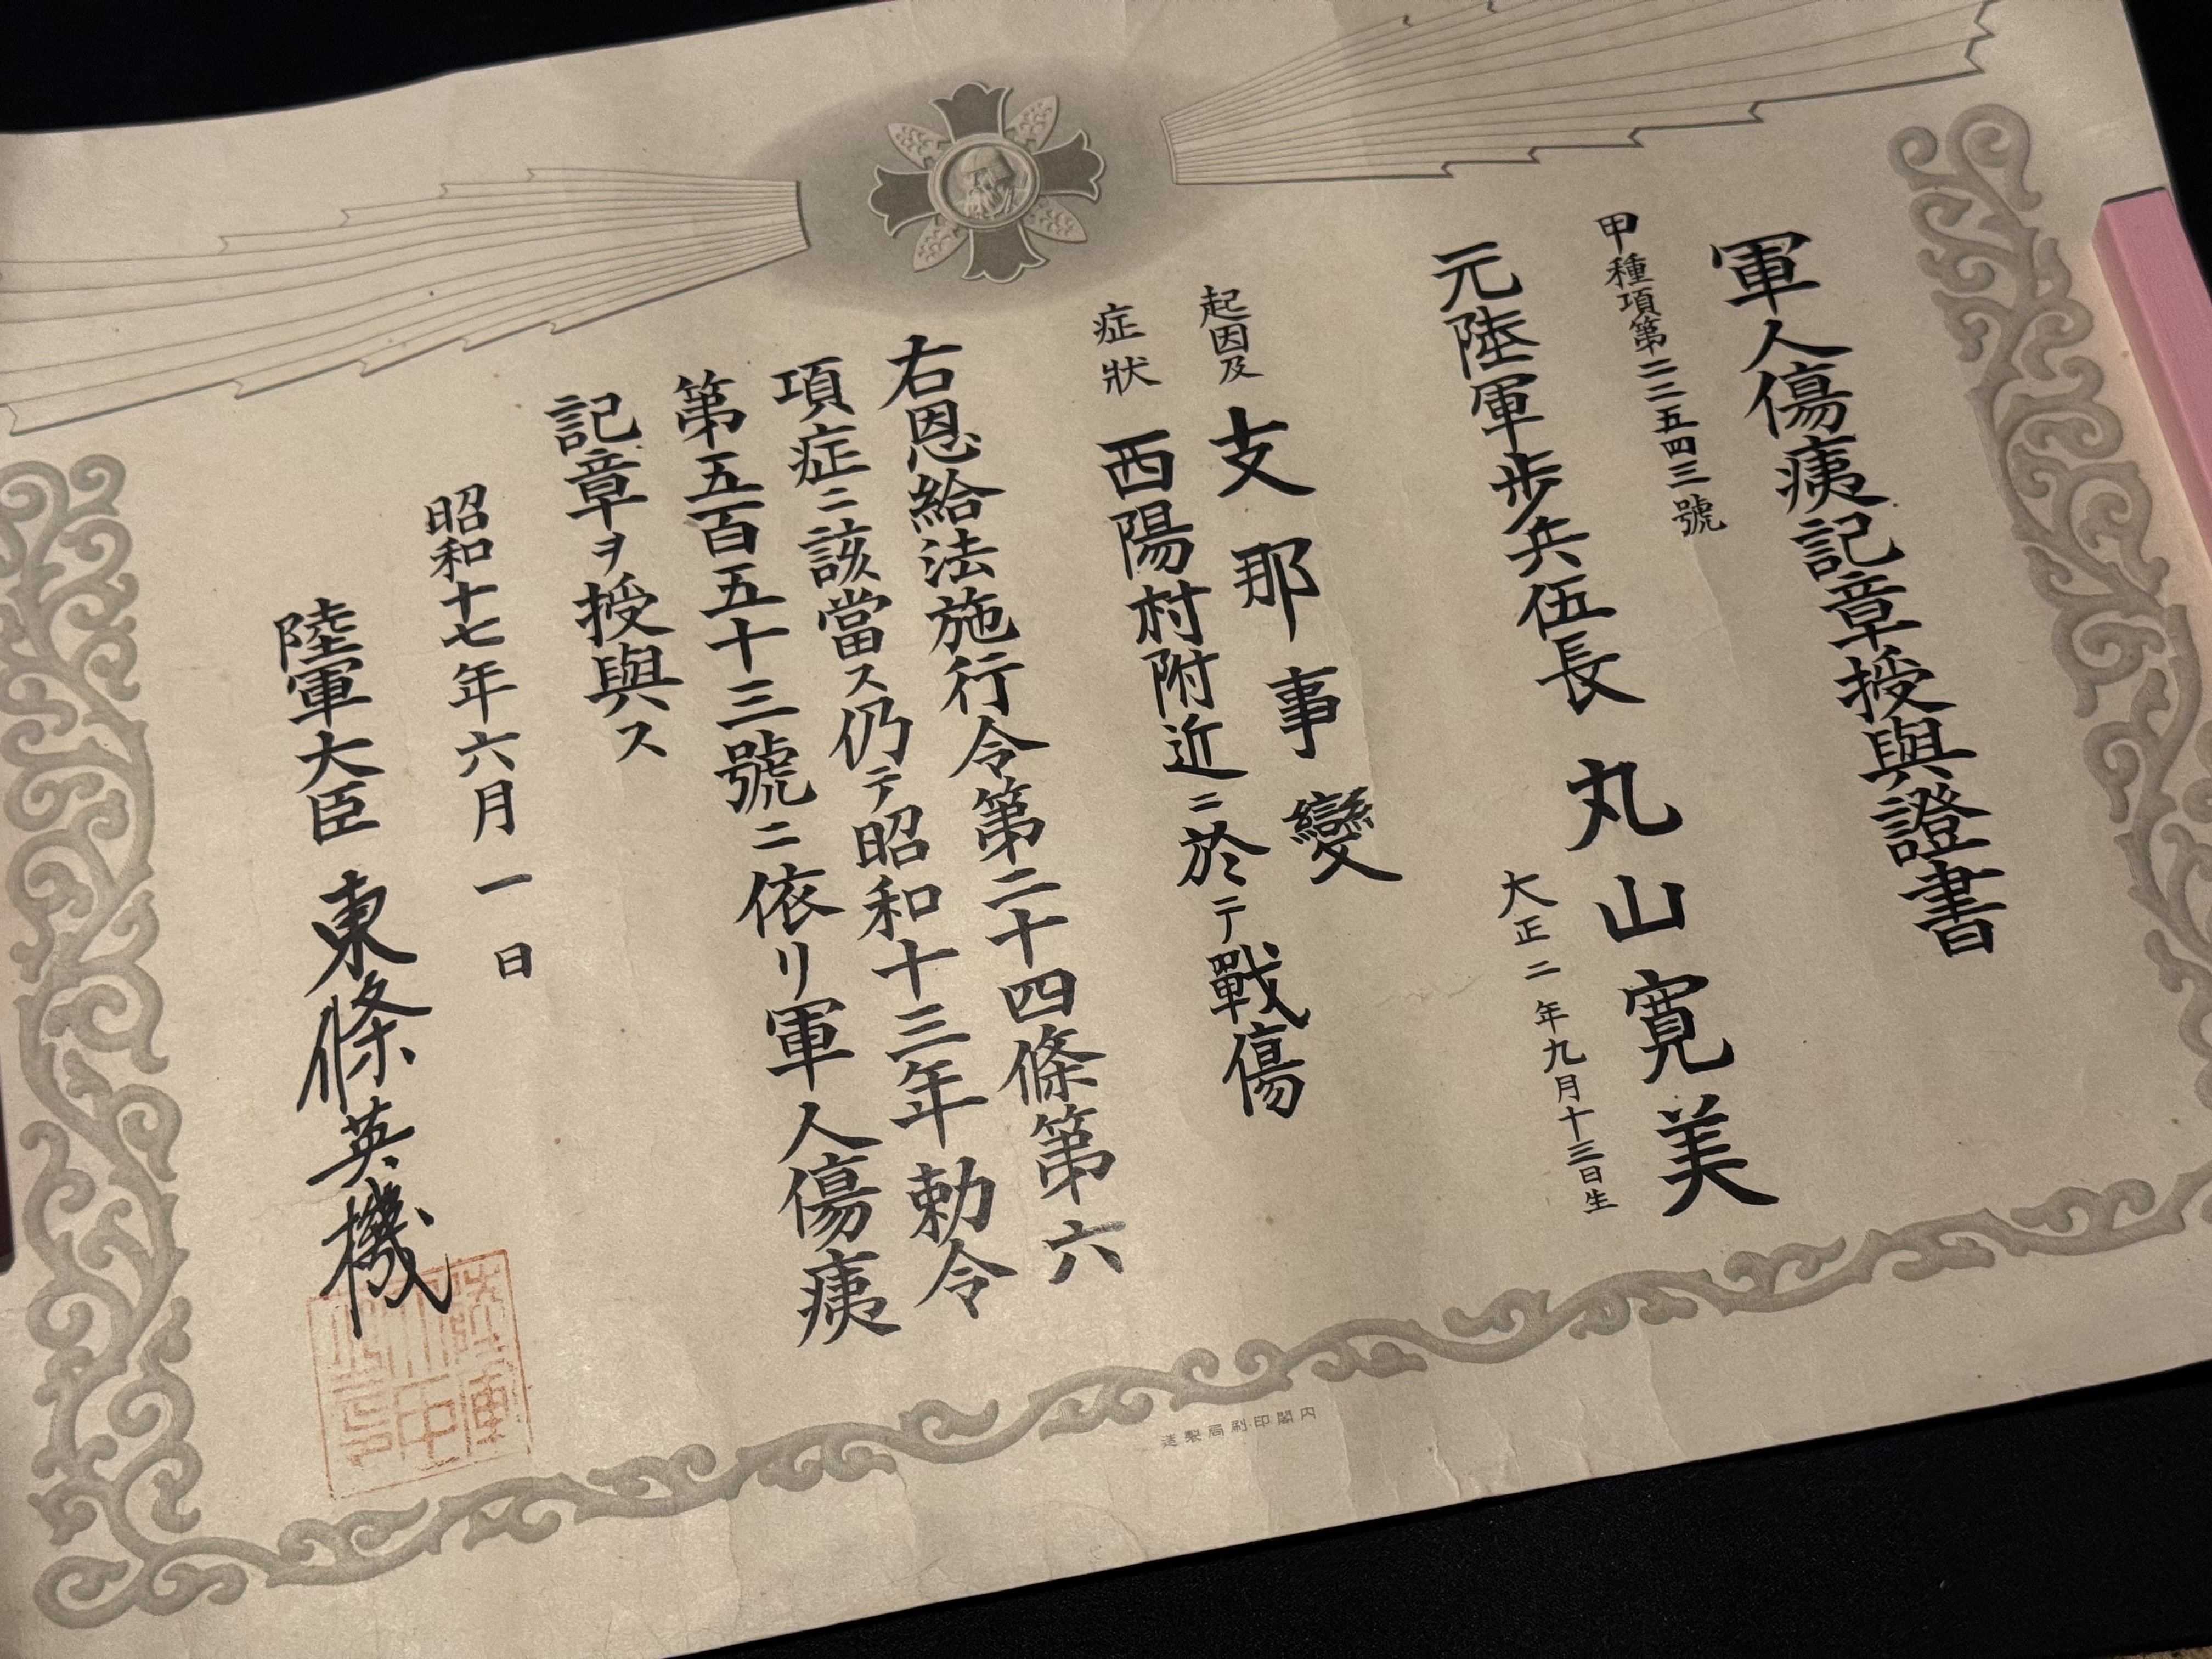 軍人傷痍記章授與證書
甲種項第二二五四三號
元陸軍歩兵伍長 丸山寛美
大正二年九月十三日生
起因及
症狀
支那事變
西陽村附近ニ於テ戰傷
右恩給法施行令第二十四條第六
項症ニ該當ス仍テ昭和十三年勅令
第五百五十三號ニ依リ軍人傷痍
記章ヲ授與ス
昭和十七年六月一日
陸軍大臣 東條英機
内閣印刷局製造